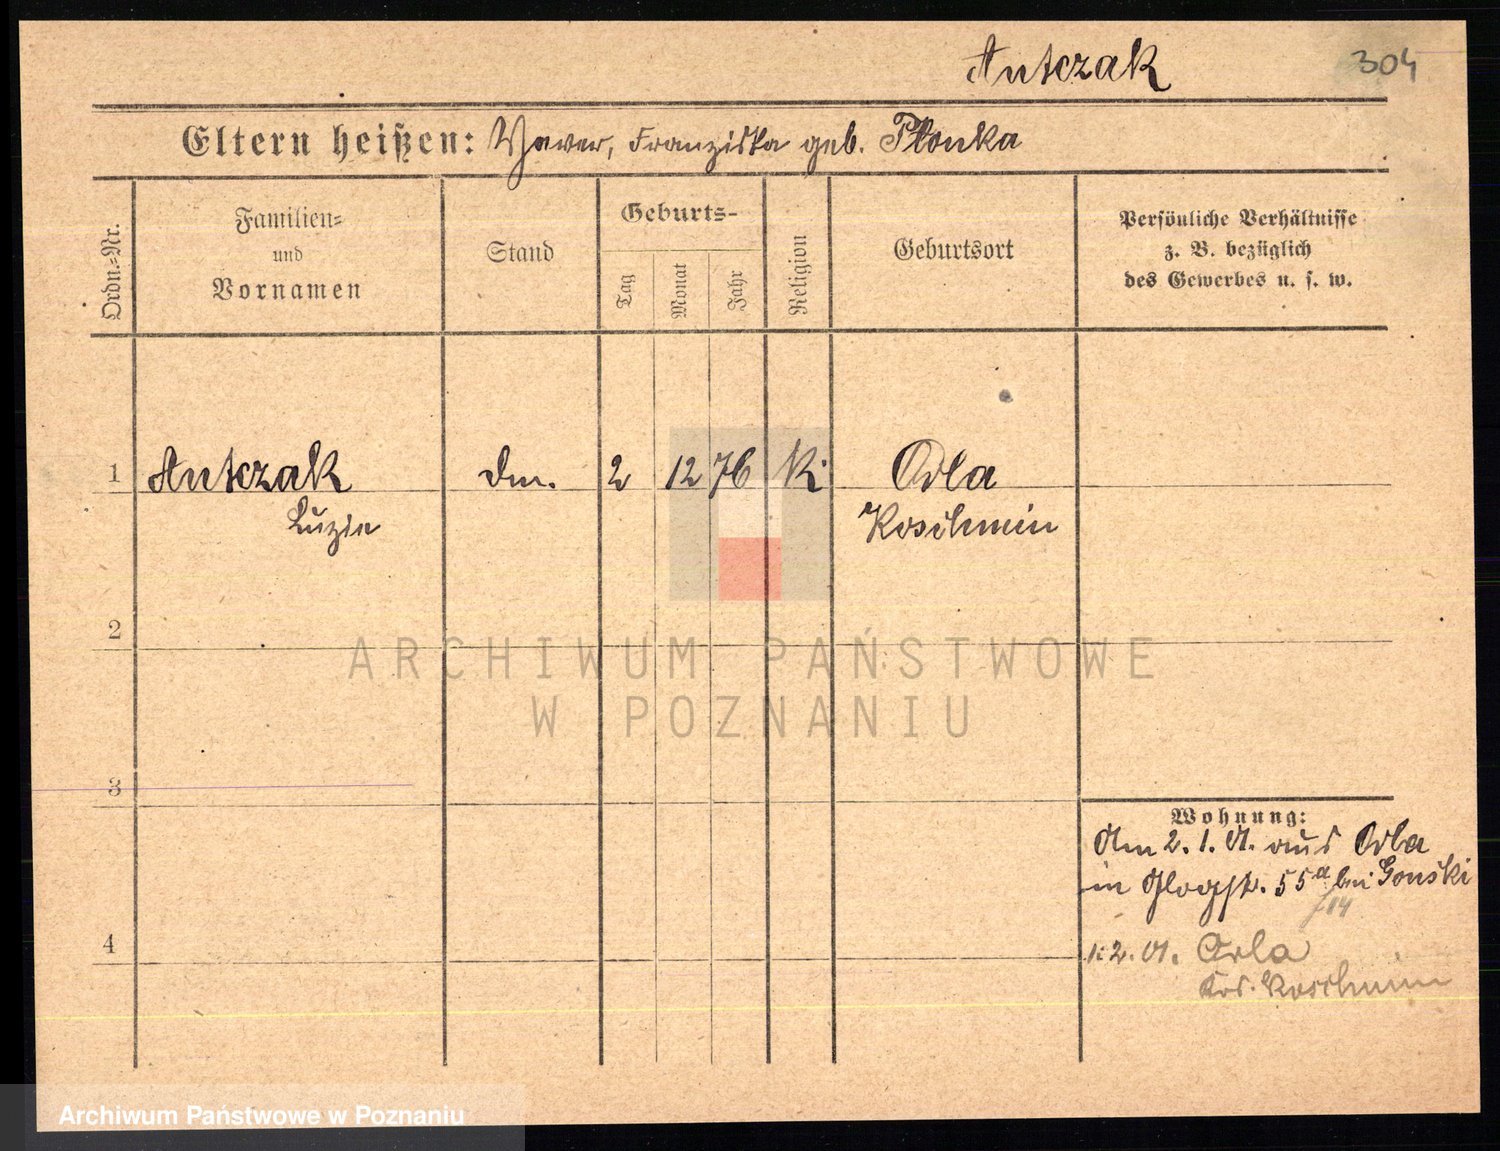 Antczak 304
Eltern heißen: Xaver, Franziska geb. Płonka
Ordn.-Nr.
Familien-
und
Vornamen
Stand
Geburts-
Tag
Monat
Jahr
Religion
Geburtsort
Persönliche Verhältnisse
z. B. bezüglich
des Gewerbes u. s. w.
1 Antczak dm. 2 12 76 k. Orla
Luzie Koschmin
2
ARCHIWUM PAŃSTWOWE
W POZNANIU
3
Wohnung:
Am 2. 1. 01. aus Orla
in 55a bei Gonski
/14
4
1. 2. 01. Orla
Krs. Koschmin
Archiwum Państwowe w Poznaniu